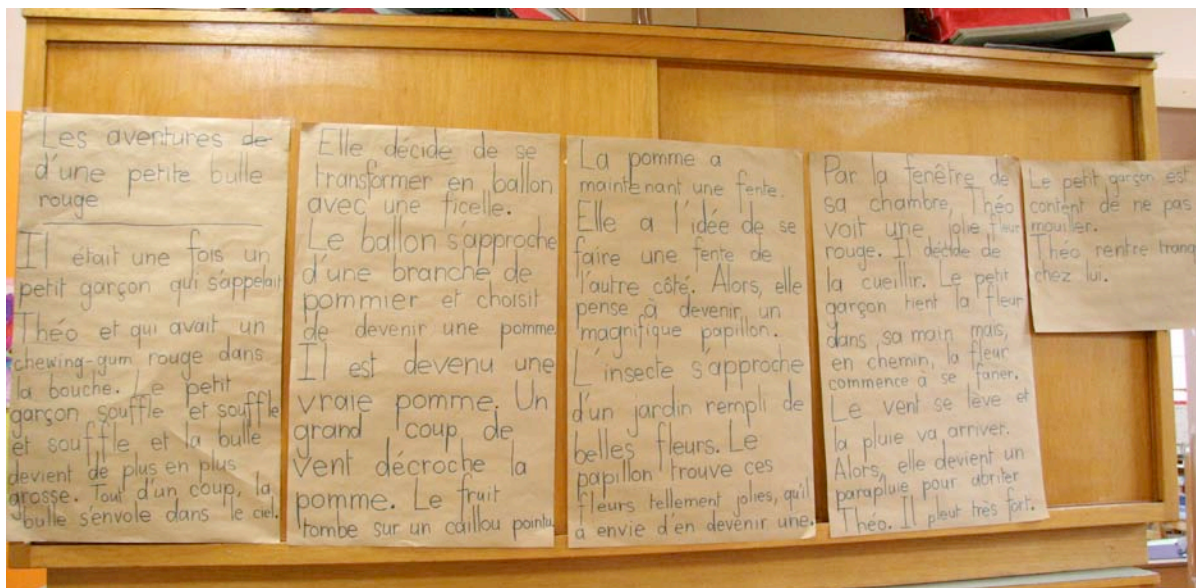 Les aventures de
d'une petite bulle
rouge
Il était une fois un
petit garçon qui s'appelait
Théo et qui avait un
chewing-gum rouge dans
la bouche. Le petit
garçon souffle et souffle
et souffle et la bulle
devient de plus en plus
grosse. Tout d'un coup, la
bulle s'envole dans le ciel.
Elle décide de se
transformer en ballon
avec une ficelle.
Le ballon s'approche
d'une branche de
pommier et choisit
de devenir une pomme.
Il est devenu une
vraie pomme. Un
grand coup de
vent décroche la
pomme. Le fruit
tombe sur un caillou pointu.
La pomme a
maintenant une fente.
Elle a l'idée de se
faire une fente de
l'autre côté. Alors, elle
pense à devenir un
magnifique papillon.
L'insecte s'approche
d'un jardin rempli de
belles fleurs. Le
papillon trouve ces
fleurs tellement jolies, qu'il
a envie d'en devenir une.
Par la fenêtre de
sa chambre, Théo
voit une jolie fleur
rouge. Il décide de
la cueillir. Le petit
garçon tient la fleur
dans sa main mais,
en chemin, la fleur
commence à se faner.
Le vent se lève et
la pluie va arriver.
Alors, elle devient un
parapluie pour abriter
Théo. Il pleut très fort.
Le petit garçon est
content de ne pas
mouiller.
Théo rentre tranq
chez lui.